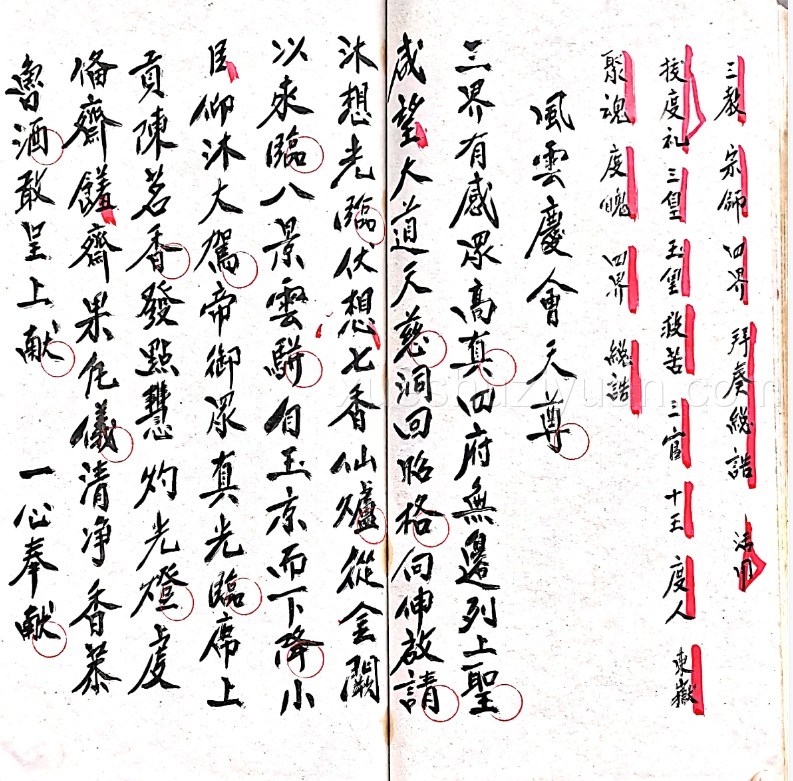 三教 宗師 四界 拜奏總誥 活用
拔度礼 三皇 玉皇 救苦 三官 十王 度人 東嶽
聚魂 度魄 四界 總誥
風雲慶會天尊
三界有感眾高真四府無邊列上聖
咸望大道天慈洞回昭格向伸啟請
沐想光臨伏想七香仙爐從金闕
以來臨八景雲駢自玉京而下降小
臣仰沐大駕帝御眾真光臨席上
貢陳茗香發點慧灼光燈虔
俻齋饈齋果化儀清净香茶
魯酒敢呈上献 一心奉献